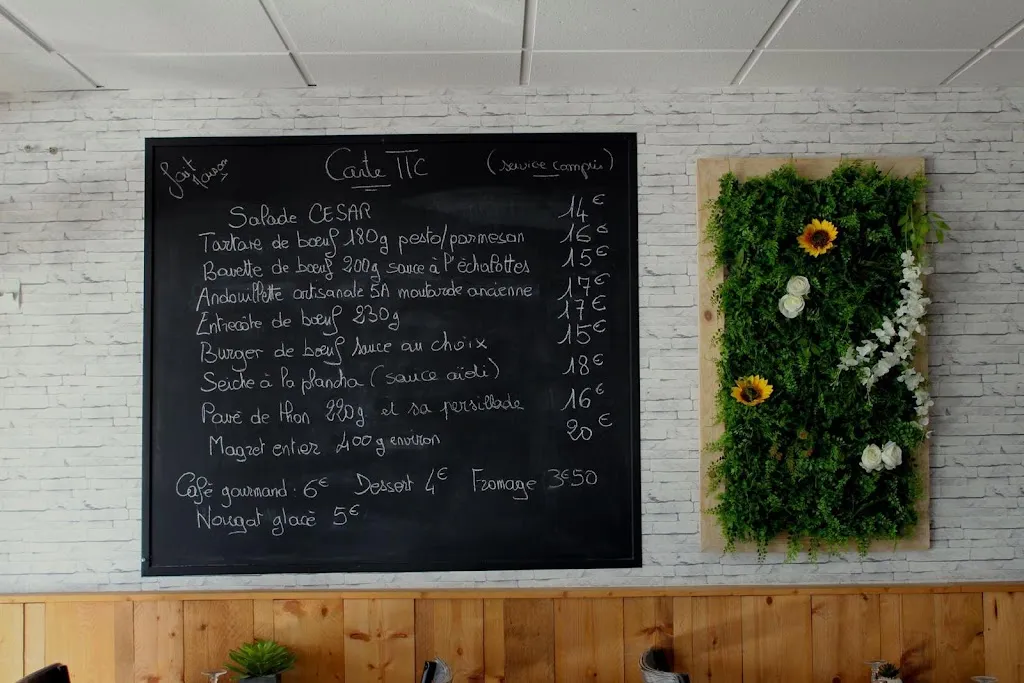 fait maison
Carte TTC (service compris)
Salade CESAR 14€
Tartare de bœuf 180g pesto/parmesan 16€
Bavette de bœuf 200g sauce à l'échalottes 15€
Andouillette artisanale 5A moutarde ancienne 17€
Entrecôte de bœuf 230g 17€
Burger de bœuf sauce au choix 15€
Seiche à la plancha (sauce aïoli) 18€
Pavé de thon 220g et sa persillade 16€
Magret entier 400g environ 20€
Café gourmand : 6€ Dessert 4€ Fromage 3€50
Nougat glacé 5€